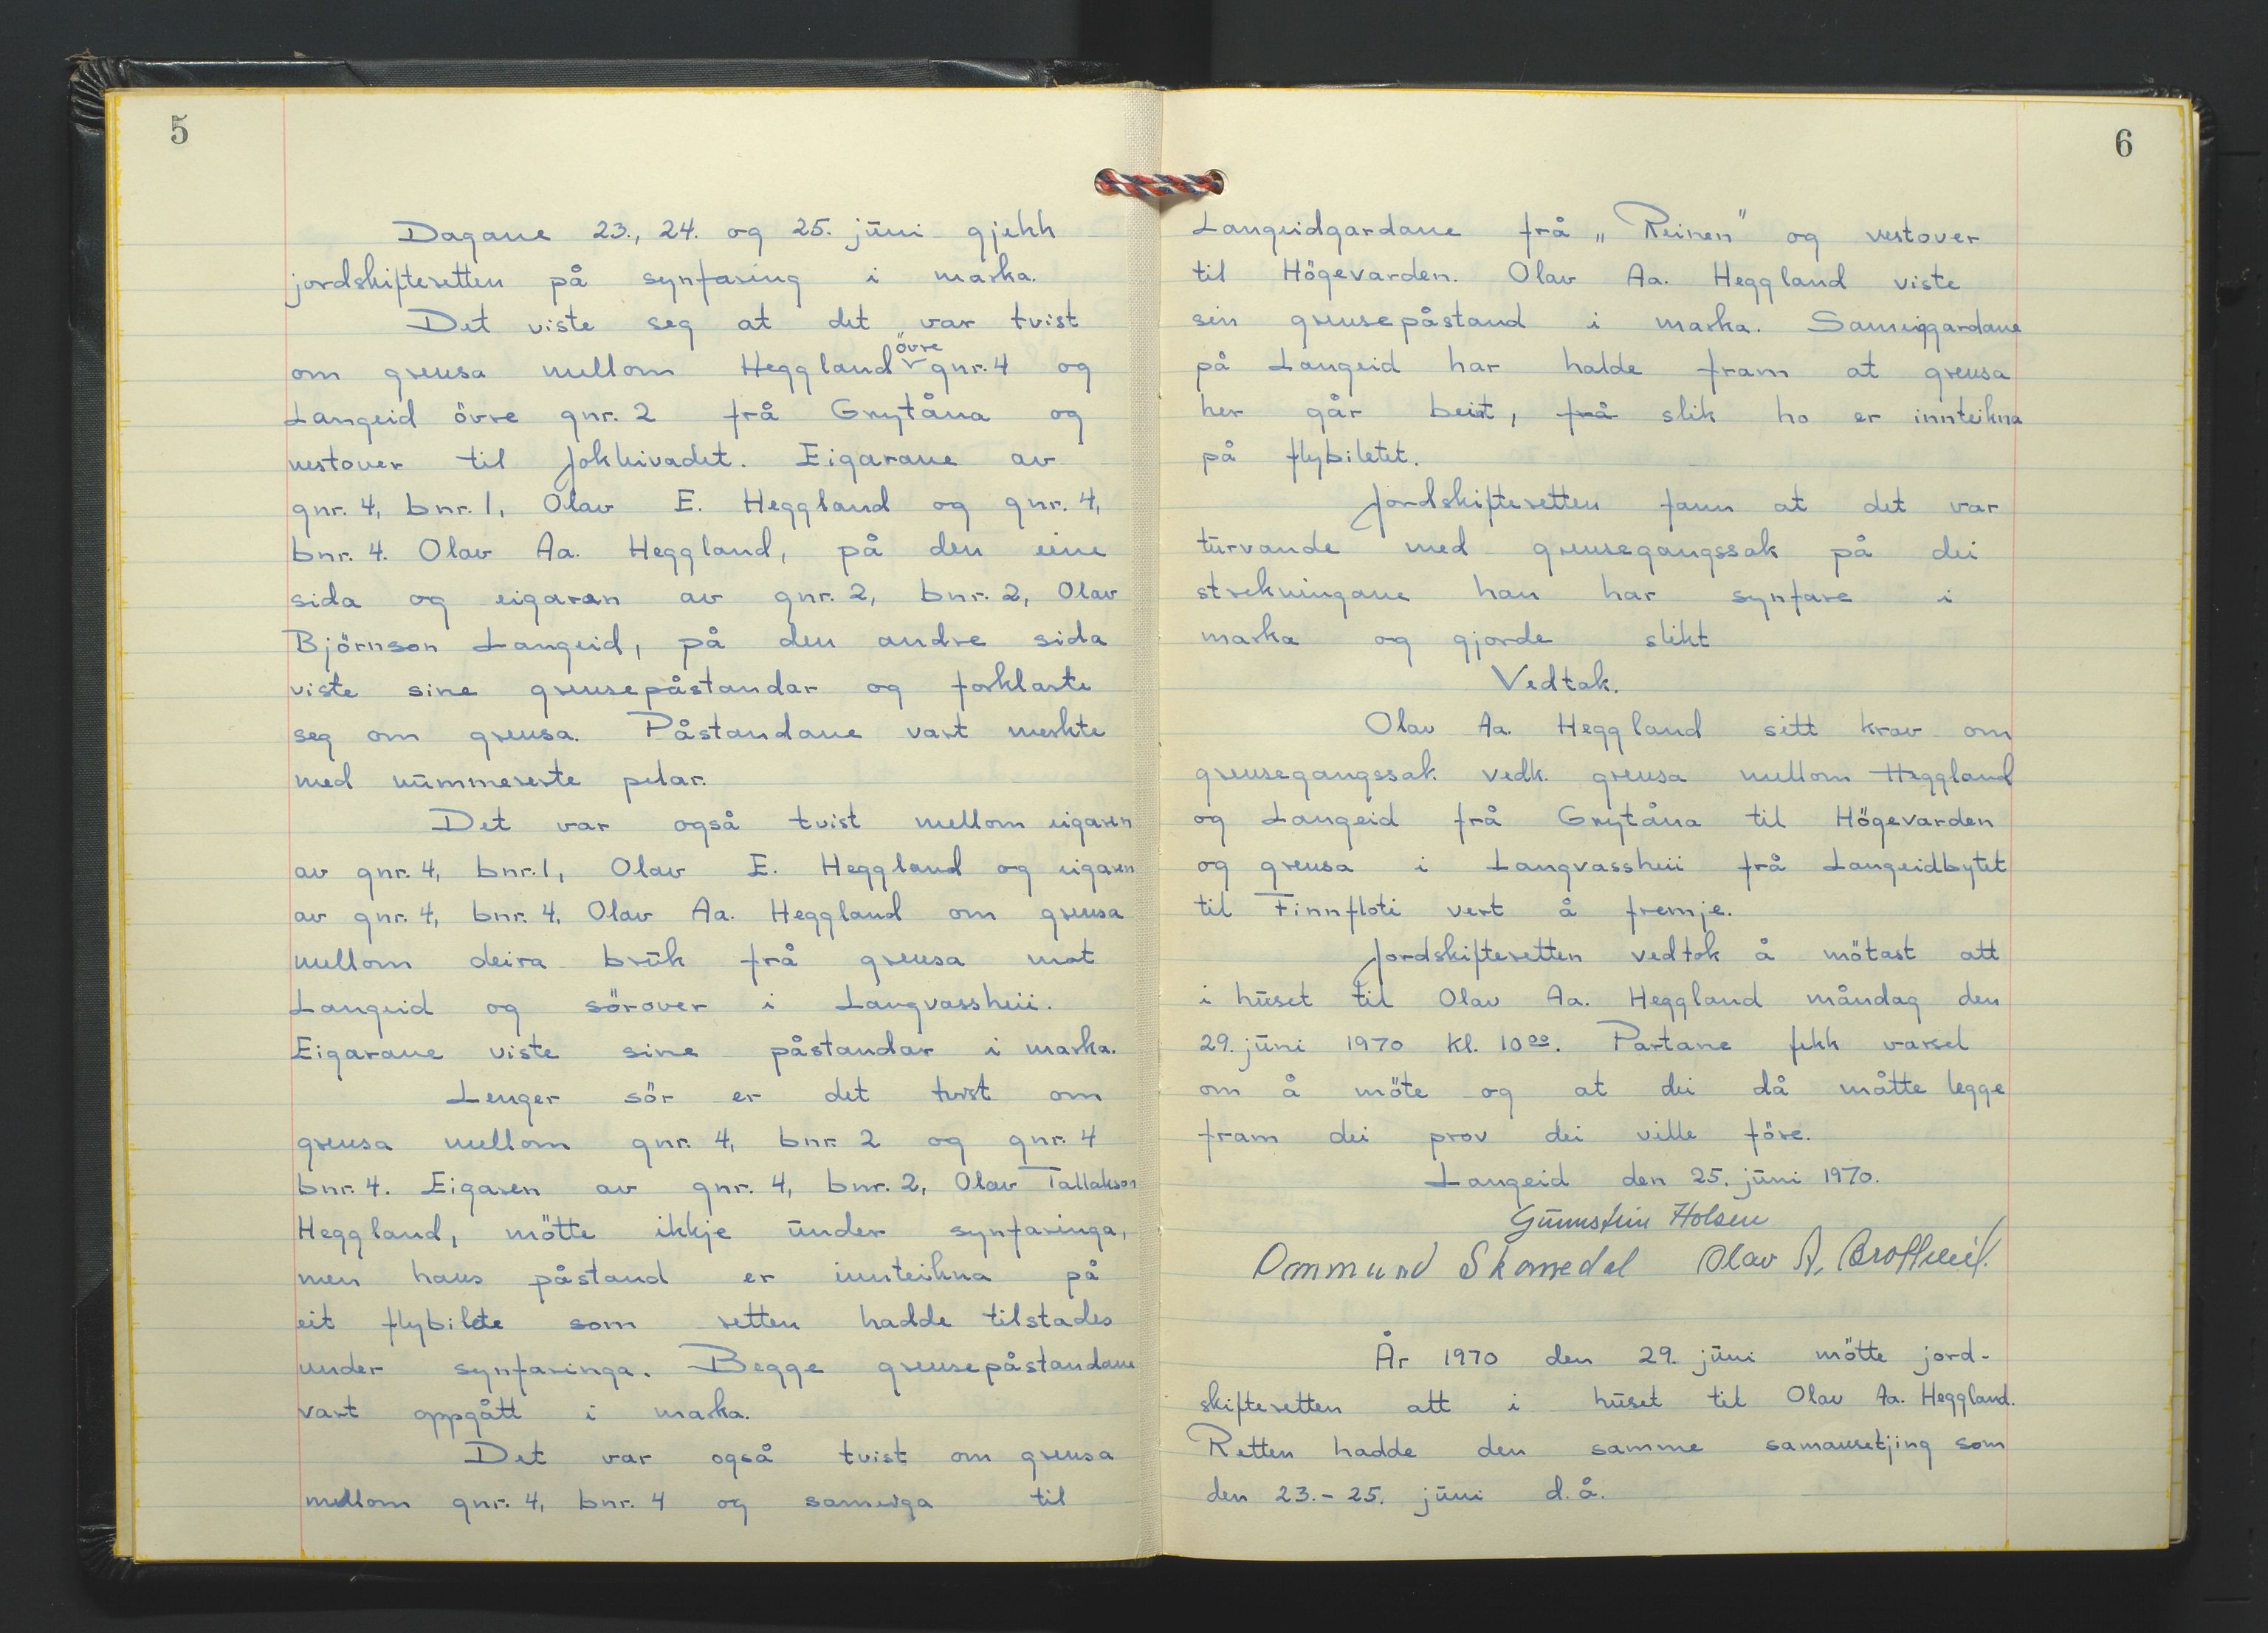 5
Dagane 23., 24. og 25. jūni gjekk
jordskifteretten på synfaring i marka.
Det viste seg at det var tvist
om grensa mellom Heggland övre gnr. 4 og
Langeid övre gnr. 2 frå Grytåna og
vestover til Jokkivadet. Eigarane av
gnr. 4, bnr. 1, Olav E. Heggland og gnr. 4,
bnr. 4. Olav Aa. Heggland, på den eine
sida og eigaren av gnr. 2, bnr. 2, Olav
Björnson Langeid, på den andre sida
viste sine grensepåstandar og forklarte
seg om grensa. Påstandane vart merkte
med nūmmererte pelar.
Det var også tvist mellom eigaren
av gnr. 4, bnr. 1, Olav E. Heggland og eigaren
av gnr. 4, bnr. 4, Olav Aa. Heggland om grensa
mellom deira brūk frå grensa mot
Langeid og sörover i Langvassheii.
Eigarane viste sine påstandar i marka.
Lenger sör er det tvist om
grensa mellom gnr. 4, bnr. 2 og gnr. 4
bnr. 4. Eigaren av gnr. 4, bnr. 2, Olav Tallakson
Heggland, mötte ikkje ūnder synfaringa,
men hans påstand er innteikna på
eit flybilete som retten hadde tilstades
under synfaringa. Begge grensepåstandane
vart oppgått i marka.
Det var også tvist om grensa
mellom gnr. 4, bnr. 4 og sameiga til
6
Langeidgardane frå „Reinen" og vestover
til Högevarden. Olav Aa. Heggland viste
sin grensepåstand i marka. Sameiggardane
på Langeid har halde fram at grensa
her går beint, frå slik ho er innteikna
på flybiletet.
Jordskifteretten fann at det var
tūrvande med grensegangssak på dei
strekningane han har synfare i
marka og gjorde slikt
Vedtak.
Olav Aa. Heggland sitt krav om
grensegangssak vedk. grensa mellom Heggland
og Langeid frå Grytåna til Högevarden
og grensa i Langvassheii frå Langeidbytet
til Finnfloti vert å fremje.
Jordskifteretten vedtok å mötast att
i hūset til Olav Aa. Heggland måndag den
29. jūni 1970 kl. 10 00. Partane fekk varsel
om å möte og at dei då måtte legge
fram dei prov dei ville före.
Langeid den 25. jūni 1970.
Gūnnstein Holsen
Ommund Skomedal Olav A.
År 1970 den 29. jūni mötte jord-
skifteretten att i hūset til Olav Aa. Heggland.
Retten hadde den samme samansetjing som
den 23.- 25. jūni d.å.